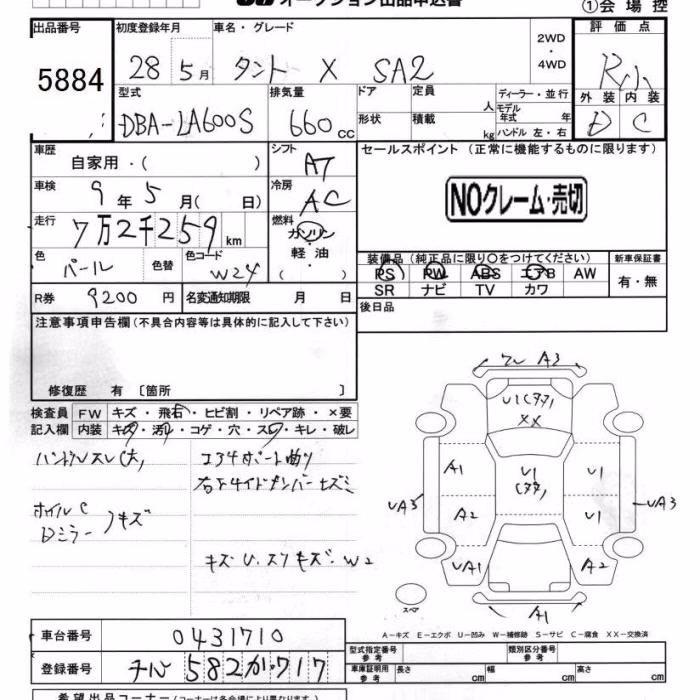 オークション出品申込書
①会場控
出品番号 5884
初度登録年月 28 5月
車名・グレード タント X SA2
2WD・4WD
評価点 R小
外装 D 内装 C
型式 DBA-LA600S
排気量 660cc
ドア 形状
定員 人 積載 kg
ディーラー・並行
モデル年式 年
ハンドル 左・右
車歴 自家用・( )
シフト AT
セールスポイント (正常に機能するものに限ります)
NOクレーム・売切
車検 9年5月( 日)
冷房 AC
走行 7万2千259km
燃料 ガソリン・軽油・( )
色 パール 色替 色コード W24
装備品 (純正品に限り〇をつけてください) 新車保証書
PS PW ABS エアB AW 有・無
SR ナビ TV カワ
R券 9200円 名変通知期限 月 日
後日品
注意事項申告欄 (不具合内容等は具体的に記入して下さい)
修復歴 有 [箇所 ]
検査員記入欄
FW キズ・飛石・ヒビ割・リペア跡・×要
内装 キズ・汚れ・コゲ・穴・スレ・キレ・破レ
ハンドルスレ(大)
コアサポート曲り
右フサイドメンバーヒズミ
ホイルC
Dミラー
キズ
キズ・U・スリキズ・W2
フレ A3
U1(タタ)
XX
A1 U1(タタ) U1
UA3 UA3
A2 U1
UA1 A2
スペア
A1
A-キズ E-エクボ U-凹み W-補修跡 S-サビ C-腐食 XX-交換済
車台番号 0431710
型式指定番号 参考 類別区分番号 参考
登録番号 582か717
車庫証明用 参考 長さ cm 幅 cm 高さ cm
希望出品コーナー